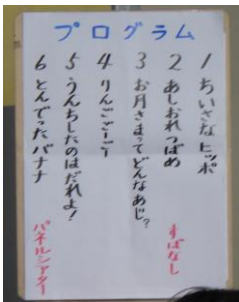 プログラム
1 ちいさなヒッポ
2 あしおれつばめ
すばなし
3 お月さまってどんなあじ?
4 りんごごーごー
5 うんちしたのはだれよ!
6 とんでったバナナ
パネルシアター